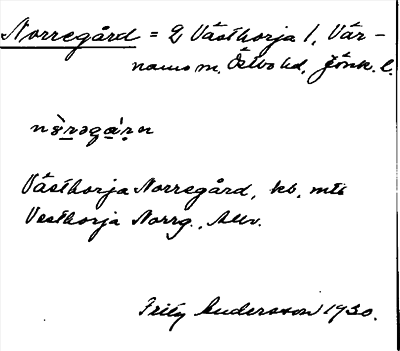 Norregård = 2 Västhorja 1, Vär-
namo sn. Östbo hd, Jönk. l.
nɜ̀rəgá̀rn
Västhorja Norregård, kb, mtl
Vesthorja Norrg., Allv.
Fritz Andersson 1930.